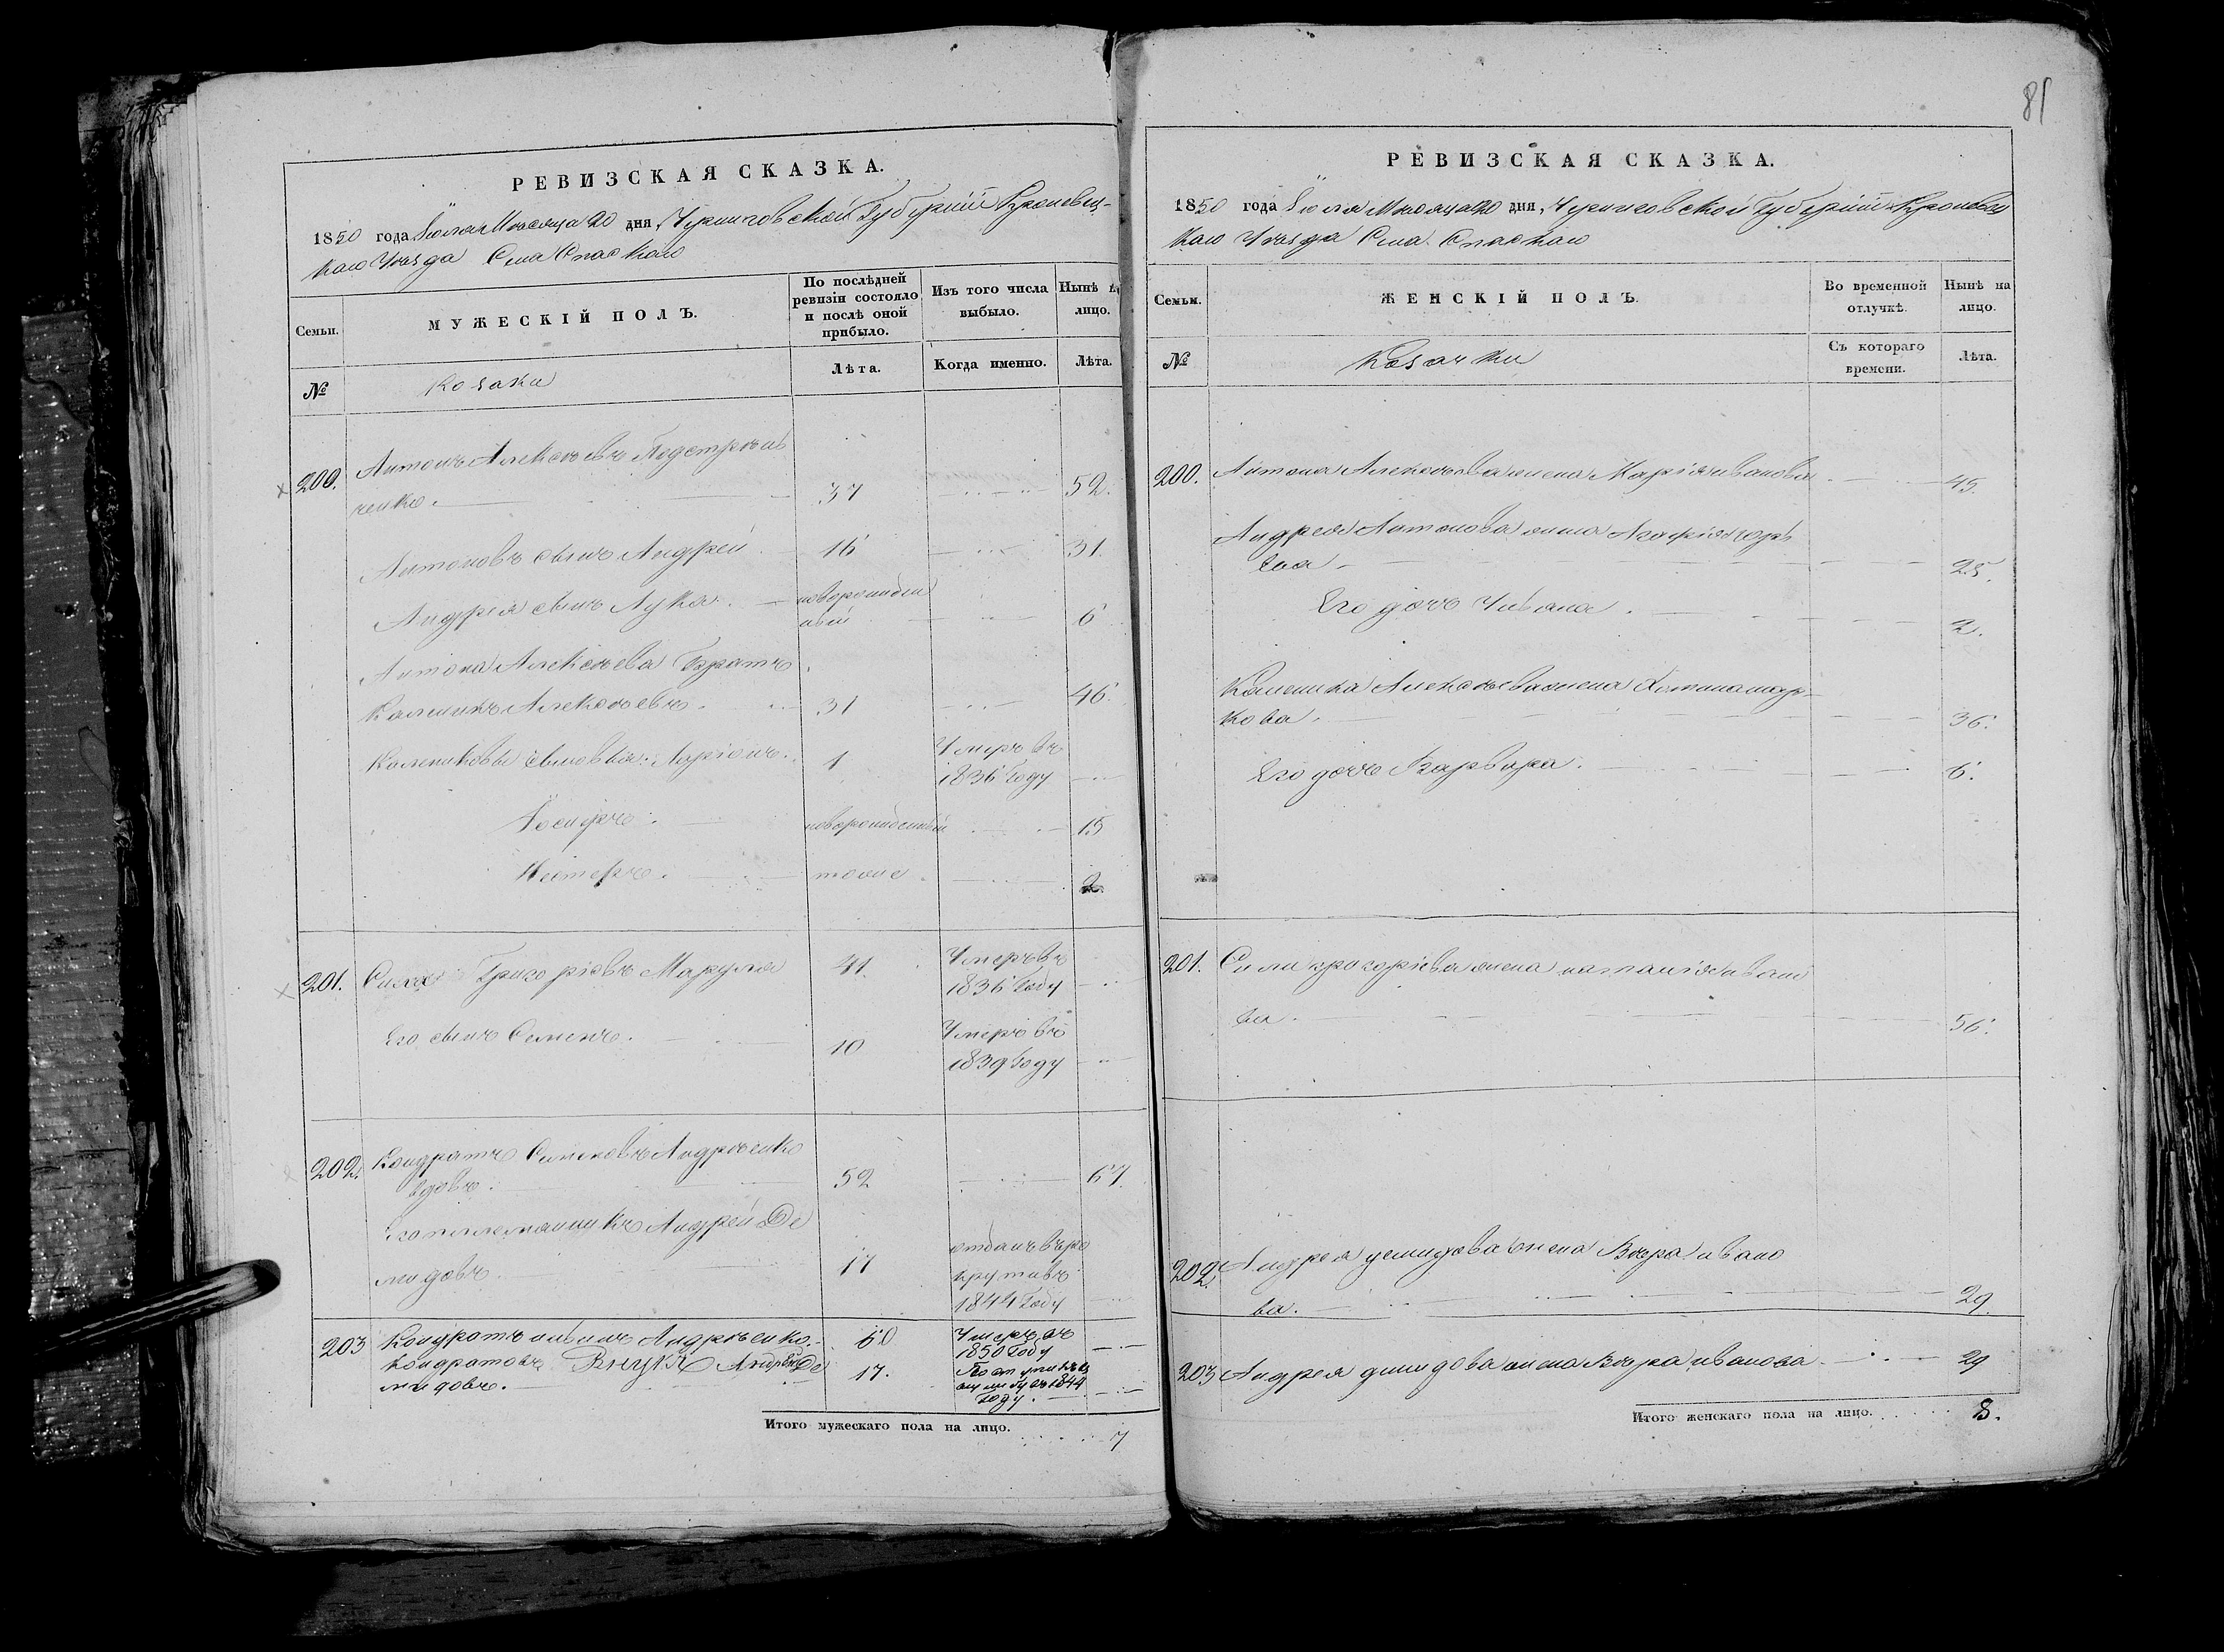 РЕВИЗСКАЯ СКАЗКА.
1850 года Іюля Месяца 20 дня, Черниговской Губерніи Кролевец-
каго Уезда Села Спаскаго
Семьи.
МУЖЕСКІЙ ПОЛЪ.
По послѣдней ревизіи состояло и послѣ оной прибыло.
Изъ того числа выбыло.
Нынѣ на лицо.
№
Козаки
Лѣта.
Когда именно.
Лѣта.
200. Антонъ Алексѣевъ Подстрѣль
ченко. 37 52.
Антоновъ сынъ Андрей 16 31
Андрея сынъ Лука. новорожден
ный 6
Антона Алексѣева Братъ
Каленикъ Алексѣевъ. 31 46.
Калениковы сыновья: Ларіонъ. 1 Умеръ въ
1836 Году
Іосифъ. новорожденный 15
Нестеръ. тоже 2
201. Сила Григоріевъ Маруля 41. Умеръ въ
1836 Году
Его сынъ Семенъ. 10 Умеръ въ
1839 Году
202. Кондратъ Симоновъ Андрѣенко
вдовъ. 52 67.
Его племянникъ Андрей Де
мидовъ. 17 отданъ въ ре
круты въ
1844 Году
203 Кондратъ Андрѣенко. 60 Умеръ въ
1850 Году
Кондратовъ Внукъ Андрей Де
мидовъ. 17. 1844
Году.
Итого мужескаго пола на лицо. 7
81
РЕВИЗСКАЯ СКАЗКА.
1850 года Іюля Месяца 20 дня, Черниговской Губерніи Кролевец
каго Уезда Села Спаскаго
Семьи.
ЖЕНСКІЙ ПОЛЪ.
Во временной отлучкѣ.
Нынѣ на лицо.
№
Козачки
Съ котораго времени.
Лѣта.
200. Антона Алексѣева жена Марія иванова 45.
Андрея Антонова жена Агафія
25.
Его дочь Уліяна. 2.
Каленика Алексѣева жена Хотина мар-
кова. 36.
Его дочь Варвара. 6.
201. Силы григоріева жена наталія ивано
ва. 56.
202. Андрея демидова жена Вѣра ивано
ва. 29
203 Андрея димидова жена Вѣра иванова 29
Итого женскаго пола на лицо. 8.